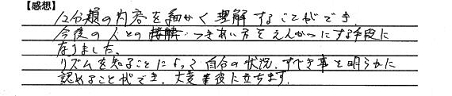 【感想】
12分類の内容を細かく理解することができ、
今後の人とのつきあい方をえんかつにする手段に
なりました。
リズムを知ることによって自分の状況、すべき事を明らかに
認めることができ、大変お役に立ちます。